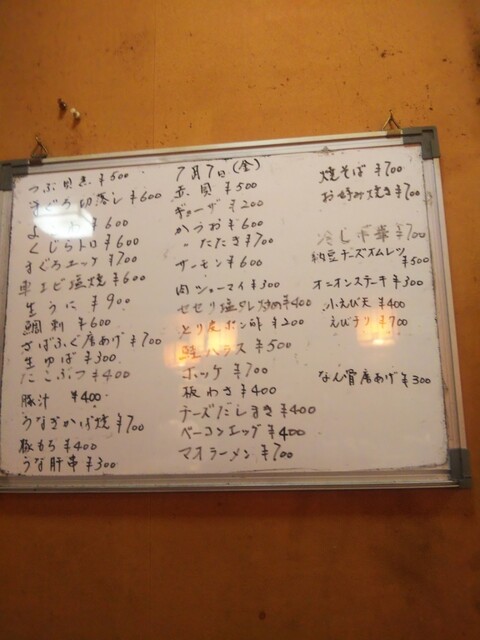 つぶ貝煮 ¥500
まぐろ切落し ¥600
¥600
くじらトロ ¥600
まぐろユッケ ¥700
車エビ塩焼 ¥600
生うに ¥900
鯛刺 ¥600
さばふぐ唐あげ ¥700
生ゆば ¥300
たこぶつ ¥400
豚汁 ¥400
うなぎかば焼 ¥700
豚もち ¥400
うな肝串 ¥300
7月7日(金)
赤貝 ¥500
ギョーザ ¥200
かつお ¥600
〃 たたき ¥700
サーモン ¥600
肉シューマイ ¥300
セセリ塩ダレ炒め ¥400
とり皮ポン酢 ¥200
鮭ハラス ¥500
ホッケ ¥700
板わさ ¥400
チーズだしまき ¥400
ベーコンエッグ ¥400
マオラーメン ¥700
焼そば ¥700
お好み焼き ¥700
冷し中華 ¥700
納豆チーズオムレツ
¥500
オニオンステーキ ¥300
小えび天 ¥400
えびチリ ¥700
なん骨唐あげ ¥300